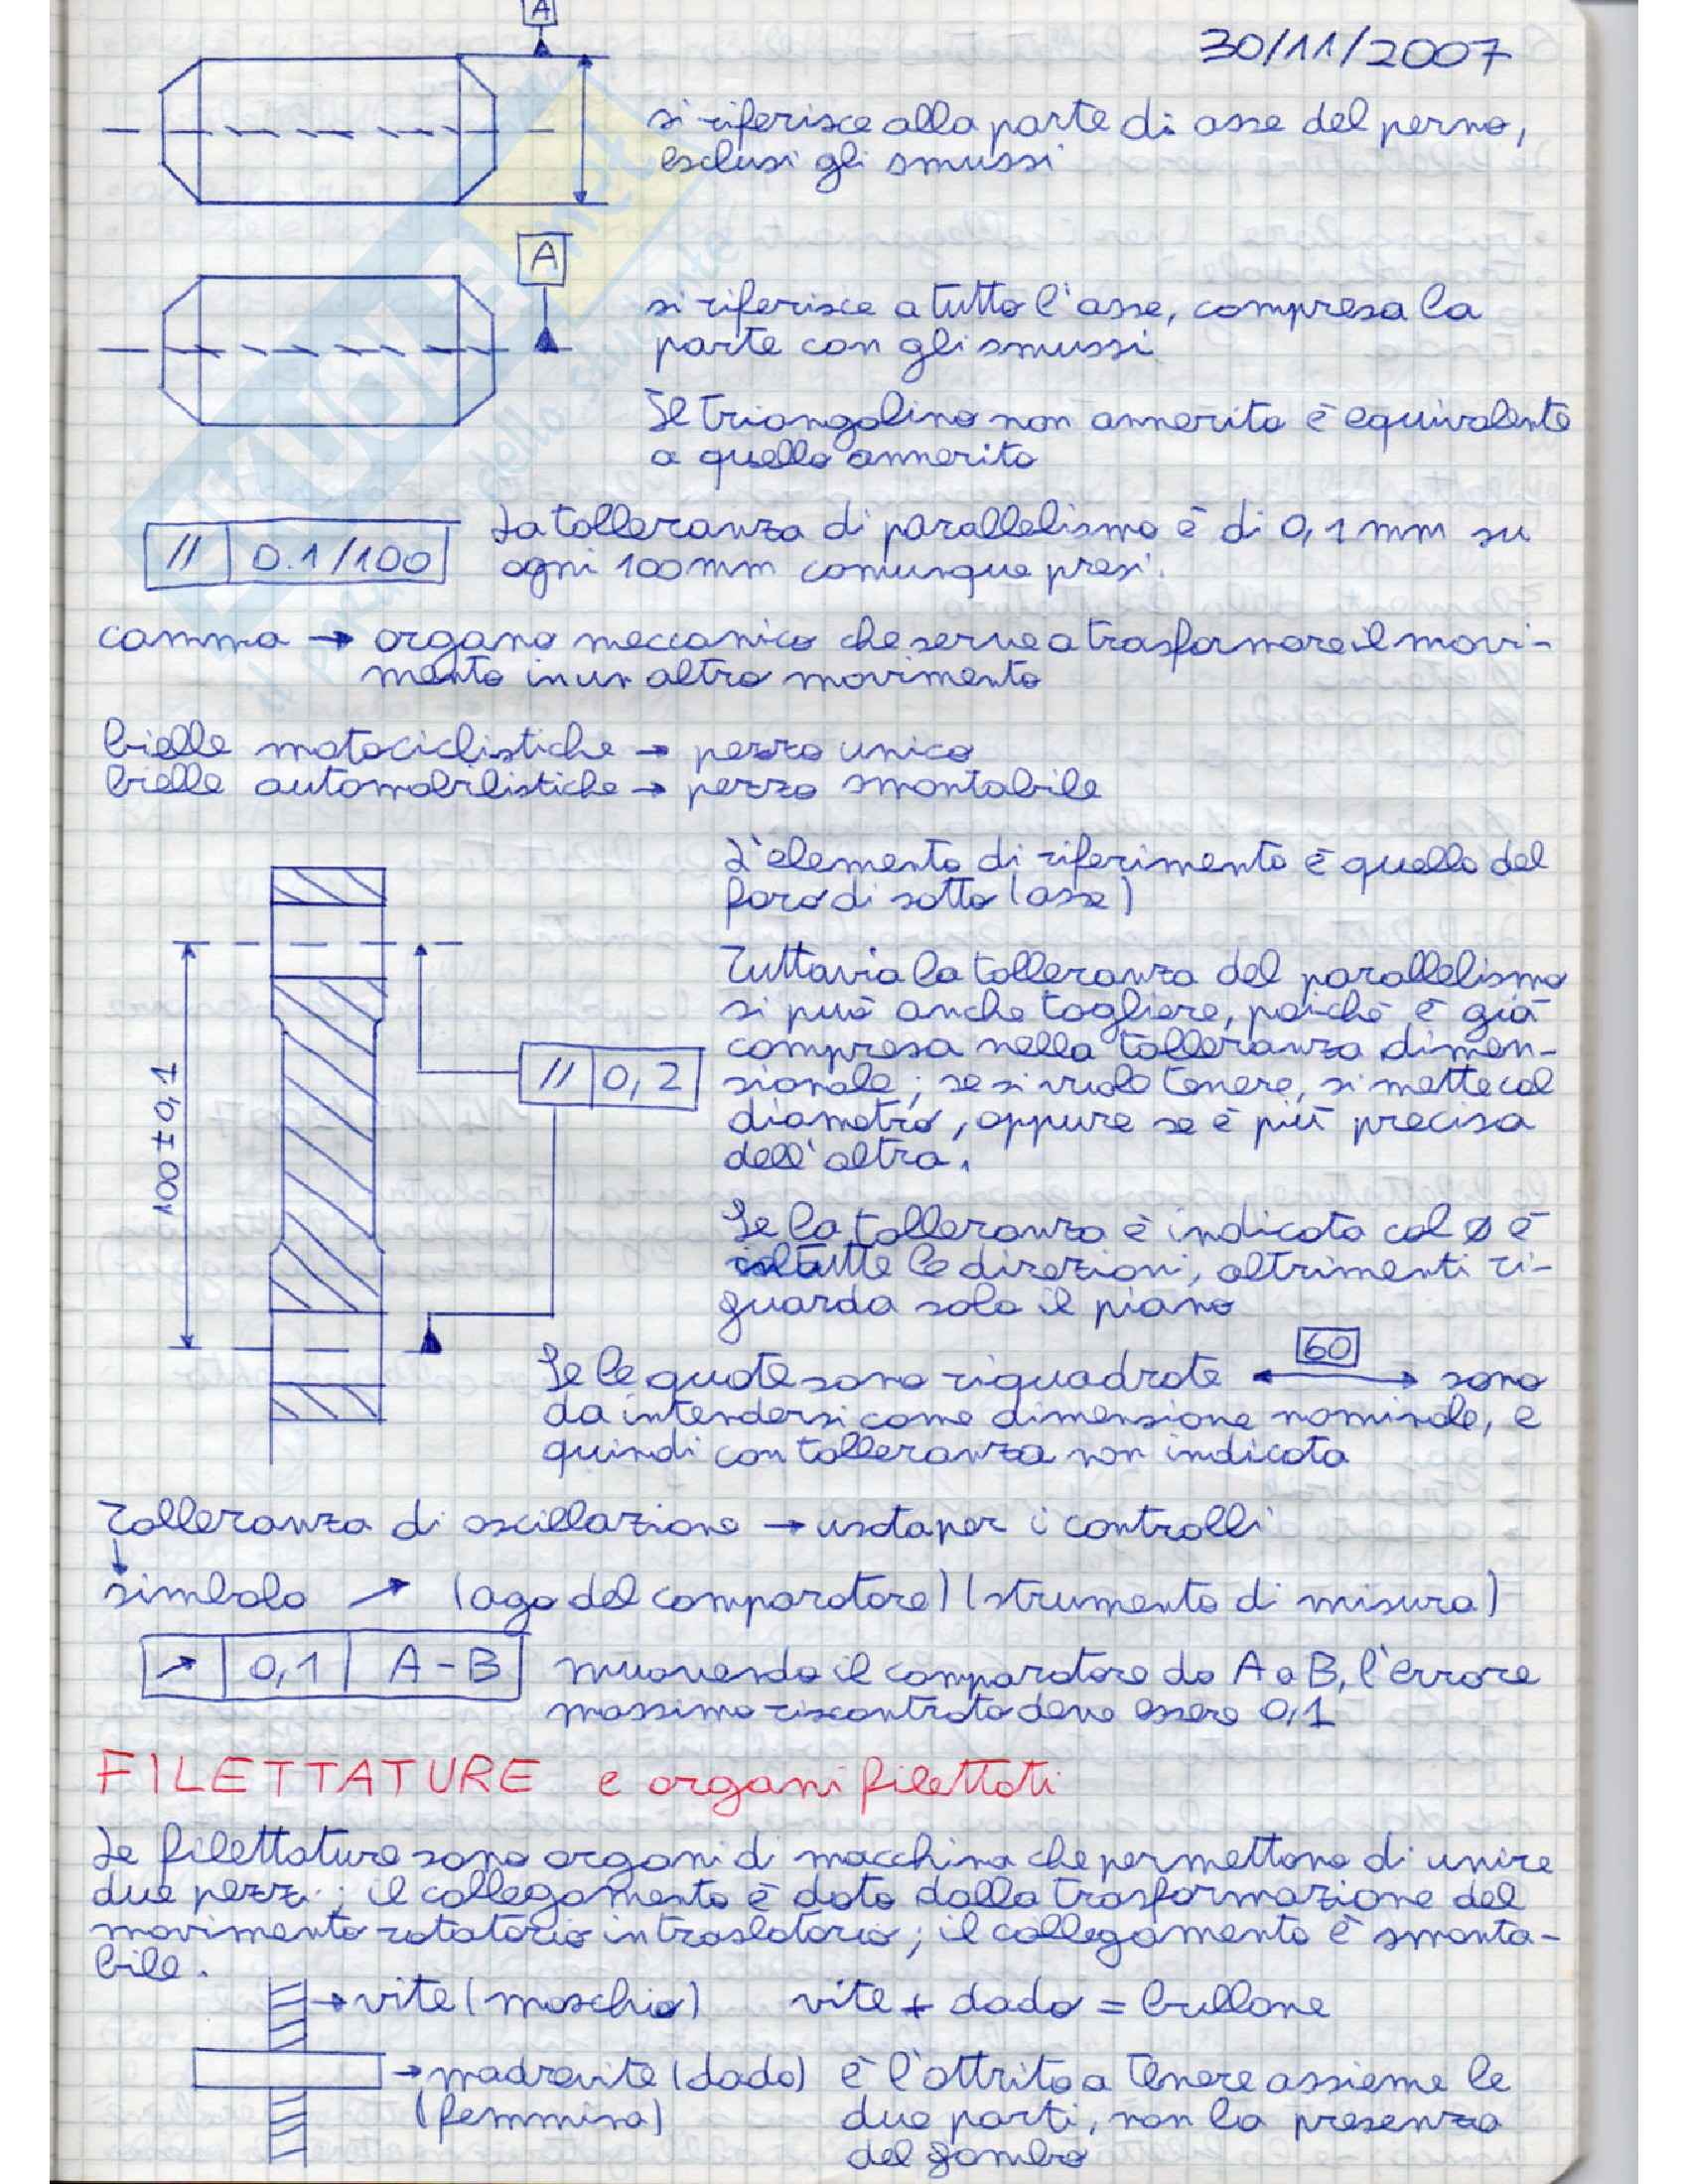 A
30/11/2007
si riferisce alla parte di asse del perno,
esclusi gli smussi
A
si riferisce a tutto l'asse, compresa la
parte con gli smussi
Il triangolino non annerito è equivalente
a quello annerito
// 0.1/100
La tolleranza di parallelismo è di 0,1 mm su
ogni 100 mm comunque presi.
camma → organo meccanico che serve a trasformare il movi-
mento in un altro movimento
bielle motociclistiche → pezzo unico
bielle automobilistiche → pezzo smontabile
L'elemento di riferimento è quello del
foro di sotto (asse)
Tuttavia la tolleranza del parallelismo
si può anche togliere, poiché è già
compresa nella tolleranza dimen-
sionale; se si vuole tenere, si mette col
diametro, oppure se è più precisa
dell'altra.
100 ± 0,1
// 0,2
Se la tolleranza è indicata col ø è
in tutte le direzioni, altrimenti ri-
guarda solo il piano
60
Se le quote sono riquadrate ↔ sono
da intendersi come dimensione nominale, e
quindi con tolleranza non indicata
Tolleranza di oscillazione → usata per i controlli
simbolo ↗ (ago del comparatore) (strumento di misura)
↗ 0,1 A-B
muovendo il comparatore da A a B, l'errore
massimo riscontrato deve essere 0,1
FILETTATURE e organi filettati
Le filettature sono organi di macchina che permettono di unire
due pezzi; il collegamento è dato dalla trasformazione del
movimento rotatorio in traslatorio; il collegamento è smonta-
bile.
→ vite (maschio) vite + dado = bullone
→ madrevite (dado)
(femmina)
è l'attrito a tenere assieme le
due parti, non la presenza
del gambo
SKUOLA.net
dello studente